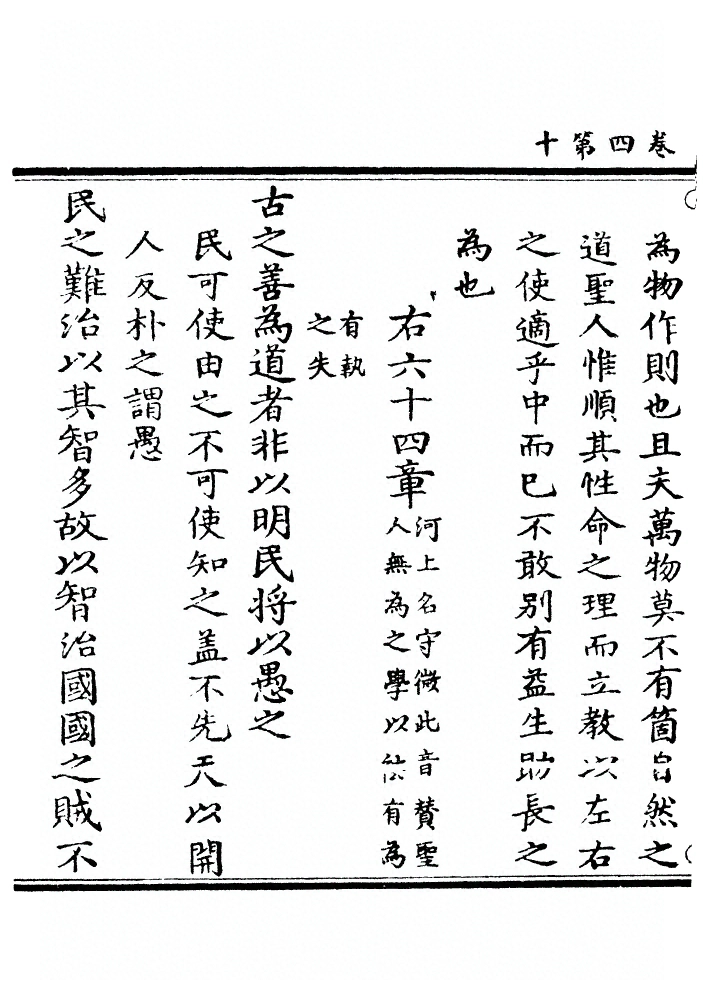 卷四第十
為物作則也且夫萬物莫不有箇自然之
道聖人惟順其性命之理而立教以左右
之使適乎中而已不敢別有益生助長之
為也
右六十四章
河上名守微此音賛聖
人無為之學以㳒有為
有執
之失
古之善為道者非以明民將以愚之
民可使由之不可使知之盖不先天以開
人反朴之謂愚
民之難治以其智多故以智治國國之賊不